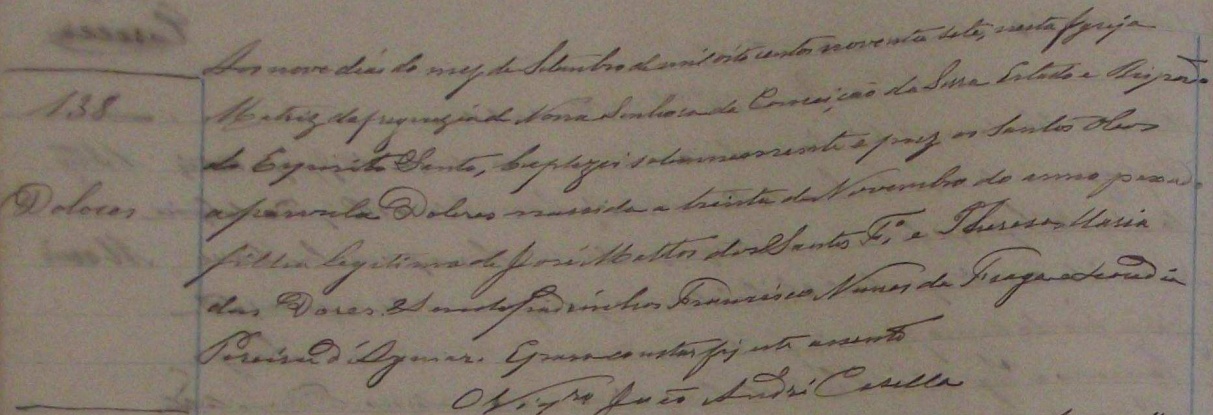 Aos nove dias do mez de Setembro de mil oito centos noventa sete, nesta Igreja
138
Matriz da freguezia de Nossa Senhora da Conceição da Serra Estado e Bispado
do Espirito Santo, baptizei solemnemente e puz os Santos Oleos
Dolores
a parvula Dolores nascida a trinta de Novembro do anno passado
filha legitima de José Mattos dos Santos Fº e Theresa Maria
das Dores. Sendo Padrinhos Francisco Nunes da Fraga e
Pereira d'Aguiar. E para constar fiz este assento
O Vigrº João André Casella